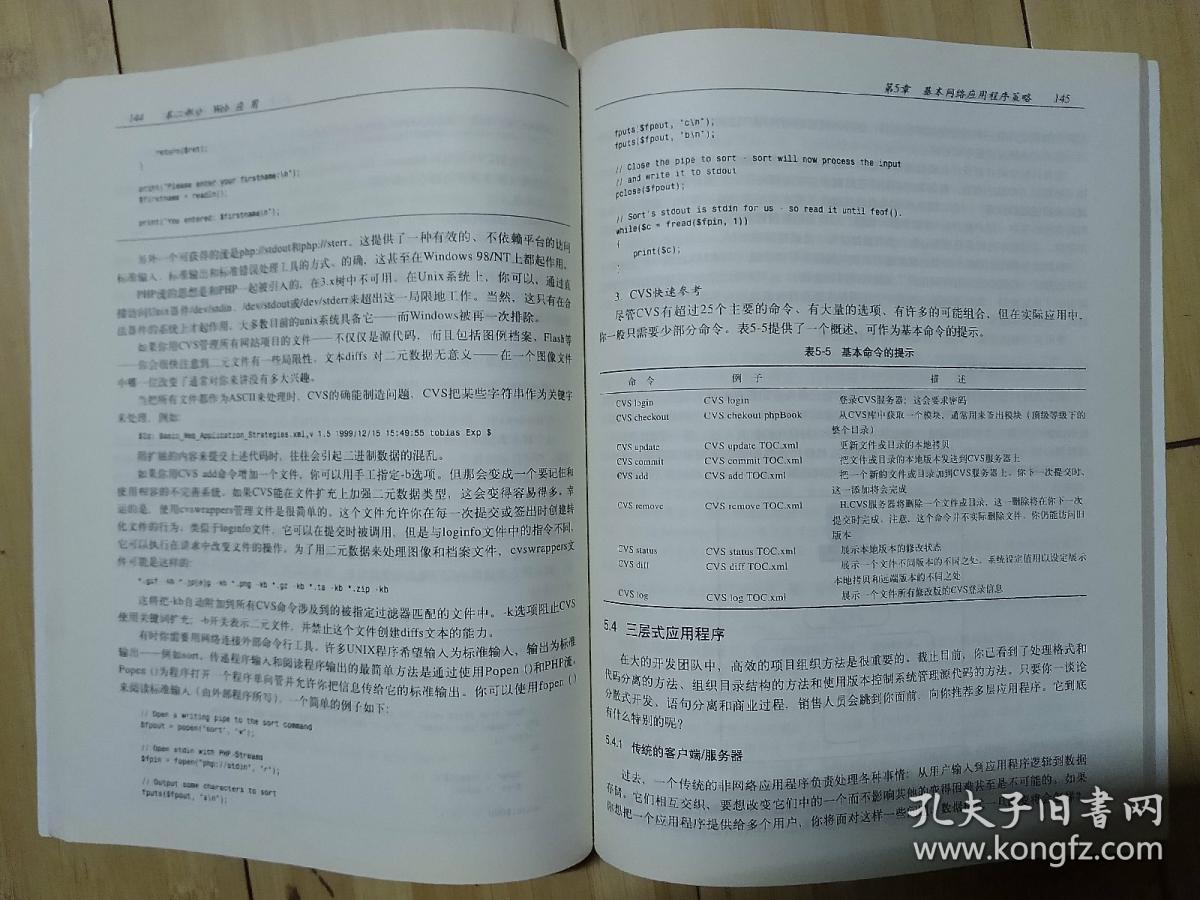 144 第二部分 Web 应用
return($ret);
}
print("Please enter your firstname:\n");
$firstname = readln();
print("You entered: $firstname\n");
另外一个可获得的流是php://stdout和php://sterr。这提供了一种有效的、不依赖平台的访问
标准输入、标准输出和标准错误处理工具的方式。的确，这甚至在Windows 98/NT上都起作用。
PHP流的思想是和PHP一起被引入的，在3.x树中不可用。在Unix系统上，你可以，通过直
接访问Unix器件/dev/stdin、/dev/stdout或/dev/stderr来超出这一局限地工作。当然，这只有在合
法器件的系统上才起作用。大多数目前的unix系统具备它——而Windows被再一次排除。
如果你用CVS管理所有网站项目的文件——不仅仅是源代码，而且包括图例档案、Flash等
——你会很快注意到二元文件有一些局限性。文本diffs 对二元数据无意义——在一个图像文件
中哪一位改变了通常对你来讲没有多大兴趣。
当把所有文件都作为ASCII来处理时，CVS的确能制造问题，CVS把某些字符串作为关键字
来处理，例如:
$Id: Basic_Web_Application_Strategies.xml,v 1.5 1999/12/15 15:49:55 tobias Exp $
用扩展的内容来提交上述代码时，往往会引起二进制数据的混乱。
如果你用CVS add命令增加一个文件，你可以用手工指定-b选项。但那会变成一个要记住和
使用的不完善系统。如果CVS能在文件扩充上加强二元数据类型，这会变得容易得多。幸
运的是，使用cvswrappers管理文件是很简单的。这个文件允许你在每一次提交或签出时创建转
化文件的行为。类似于loginfo文件，它可以在提交时被调用，但是与loginfo文件中的指令不同，
它可以执行在请求中改变文件的操作。为了用二元数据来处理图像和档案文件，cvswrappers文
件可能是这样的:
*.gif -kb *.jp[e]g -kb *.png -kb *.gz -kb *.ta -kb *.zip -kb
这将把-kb自动附加到所有CVS命令涉及到的被指定过滤器匹配的文件中。-k选项阻止CVS
使用关键词扩充；-b开关表示二元文件，并禁止这个文件创建diffs文本的能力。
有时你需要用网络连接外部命令行工具。许多UNIX程序希望输入为标准输入，输出为标准
输出——例如sort。传递程序输入和阅读程序输出的最简单方法是通过使用Popen ()和PHP流。
Popen ()为程序打开一个程序单向管并允许你把信息传给它的标准输出。你可以使用fopen ()
来阅读标准输入（由外部程序所写），一个简单的例子如下:
// Open a writing pipe to the sort command
$fpout = popen("sort", "w");
// Open stdin with PHP-Streams
$fpin = fopen("php://stdin", "r");
// Output some characters to sort
fputs($fpout, "a\n");
第5章 基本网络应用程序策略 145
fputs($fpout, "c\n");
fputs($fpout, "b\n");
// Close the pipe to sort - sort will now process the input
// and write it to stdout
pclose($fpout);
// Sort's stdout is stdin for us - so read it until feof().
while($c = fread($fpin, 1))
{
print($c);
}
3. CVS快速参考
尽管CVS有超过25个主要的命令、有大量的选项、有许多的可能组合，但在实际应用中，
你一般只需要少部分命令。表5-5提供了一个概述，可作为基本命令的提示。
表5-5 基本命令的提示
命 令 例 子 描 述
CVS login CVS login 登录CVS服务器；这会要求密码
CVS checkout CVS chekout phpBook 从CVS库中获取一个模块，通常用来签出模块（顶级等级下的
整个目录）
CVS update CVS update TOC.xml 更新文件或目录的本地拷贝
CVS commit CVS commit TOC.xml 把文件或目录的本地版本发送到CVS服务器上
CVS add CVS add TOC.xml 把一个新的文件或目录加到CVS服务器上，你下一次提交时，
这一添加将会完成
CVS remove CVS remove TOC.xml H.CVS服务器将删除一个文件或目录，这一删除将在你下一次
提交时完成。注意，这个命令并不实际删除文件，你仍能访问旧
版本
CVS status CVS status TOC.xml 展示本地版本的修改状态
CVS diff CVS diff TOC.xml 展示一个文件不同版本的不同之处。系统设定值用以设定展示
本地拷贝和远端版本的不同之处
CVS log CVS log TOC.xml 展示一个文件所有修改版的CVS登录信息
5.4 三层式应用程序
在大的开发团队中，高效的项目组织方法是很重要的。截止目前，你已看到了处理格式和
代码分离的方法、组织目录结构的方法和使用版本控制系统管理源代码的方法。只要你一谈论
分散式开发、语句分离和商业过程，销售人员会跳到你面前，向你推荐多层应用程序。它到底
有什么特别的呢?
5.4.1 传统的客户端/服务器
过去，一个传统的非网络应用程序负责处理各种事情：从用户输入到应用程序逻辑到数据
存储。它们相互交织、要想改变它们中的一个而不影响其他的变得困难甚至是不可能的。如果
你想把一个应用程序提供给多个用户，你将面对这样一些
孔夫子旧书网
www.kongfz.com